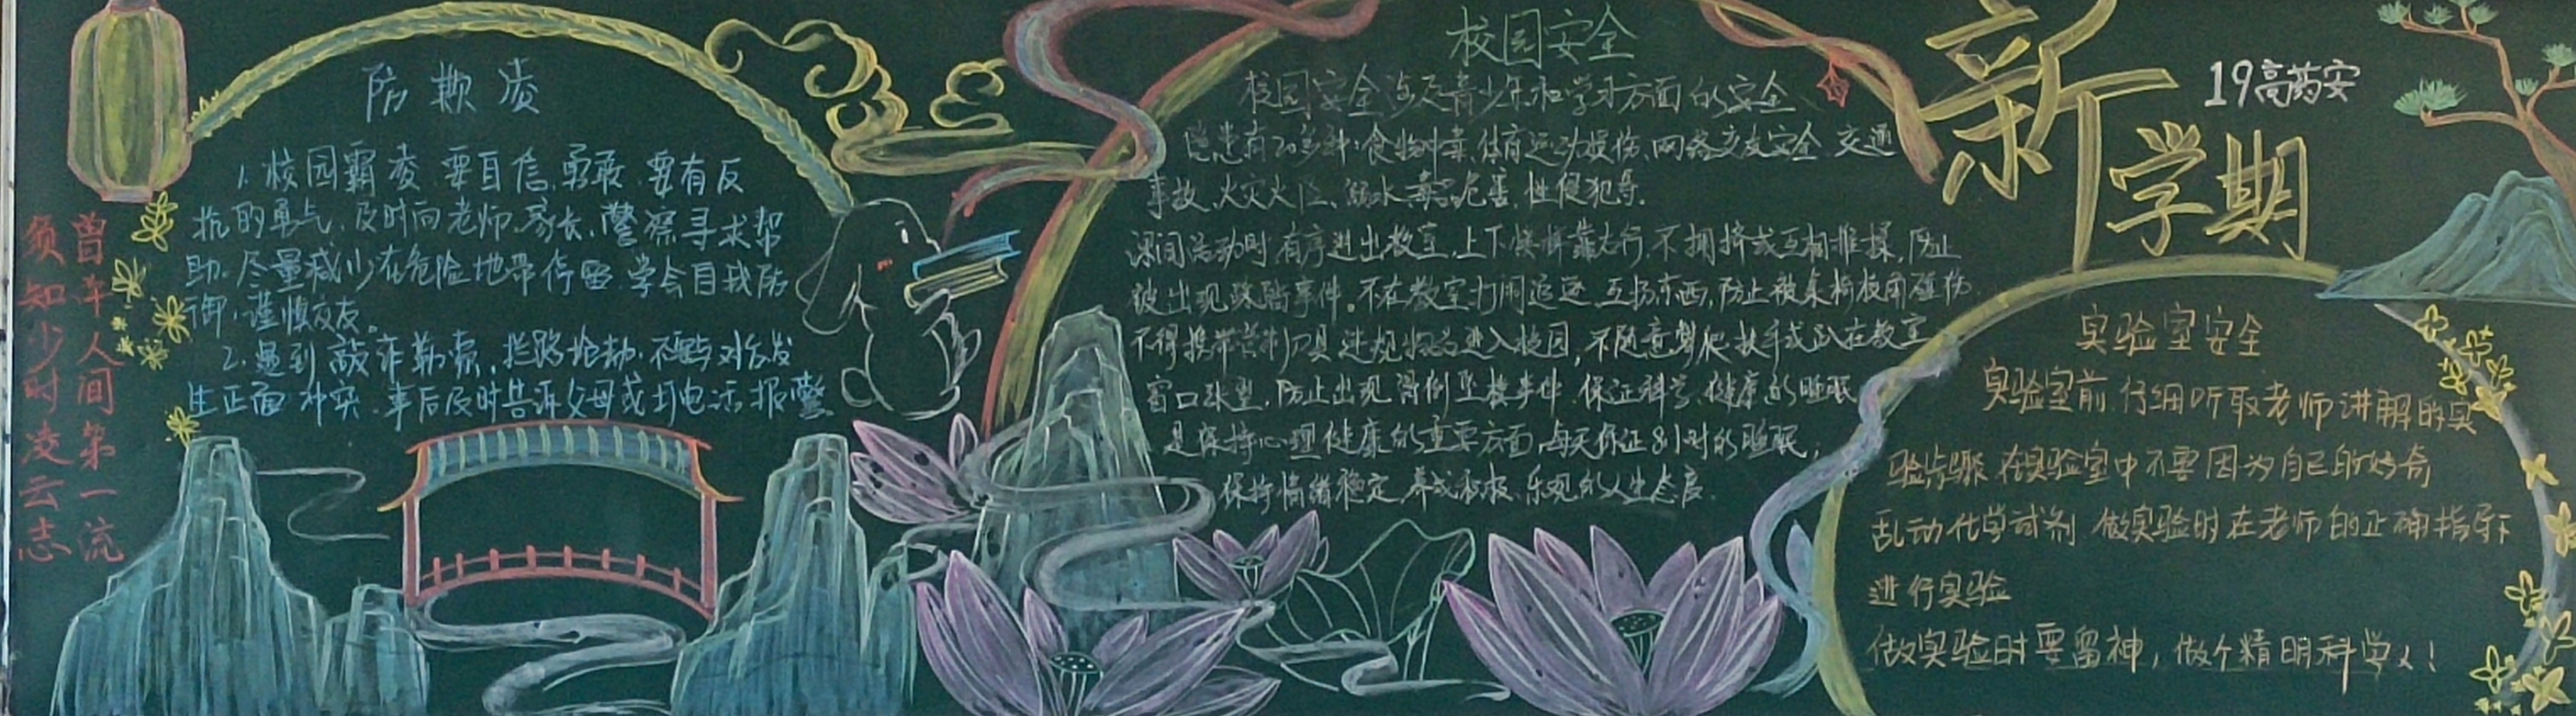 须知少时凌云志
曾许人间第一流
防欺凌
1.校园霸凌.要自信.勇敢.要有反
抗的勇气.及时向老师.家长.警察寻求帮
助.尽量减少在危险地带停留.学会自我防
御.谨慎交友。
2.遇到敲诈勒索,拦路抢劫.不要与对方发
生正面冲突.事后及时告诉父母或打电话报警
校园安全
校园安全涉及青少年和学习方面的安全
隐患有20多种:食物中毒、体育运动损伤、网络交友安全、交通
事故、火灾火险、溺水、毒品危害、性侵犯等.
课间活动时有序进出教室,上下楼梯靠右行.不拥挤或互相推搡,防止
被出现踩踏事件。不在教室打闹追逐,互扔东西,防止被桌椅板角碰伤
不得携带管制刀具违规物品进入校园,不随意攀爬扶手或趴在教室
窗口张望,防止出现滑倒坠楼事件.保证科学、健康的睡眠
是保持心理健康的重要方面,每天保证8小时的睡眠;
保持情绪稳定,养成积极、乐观的人生态度.
新学期
19高药安
实验室安全
实验室前,仔细听取老师讲解的实
验步骤.在实验室中不要因为自己的好奇
乱动化学试剂.做实验时在老师的正确指导下
进行实验
做实验时要留神,做个精明科学人!